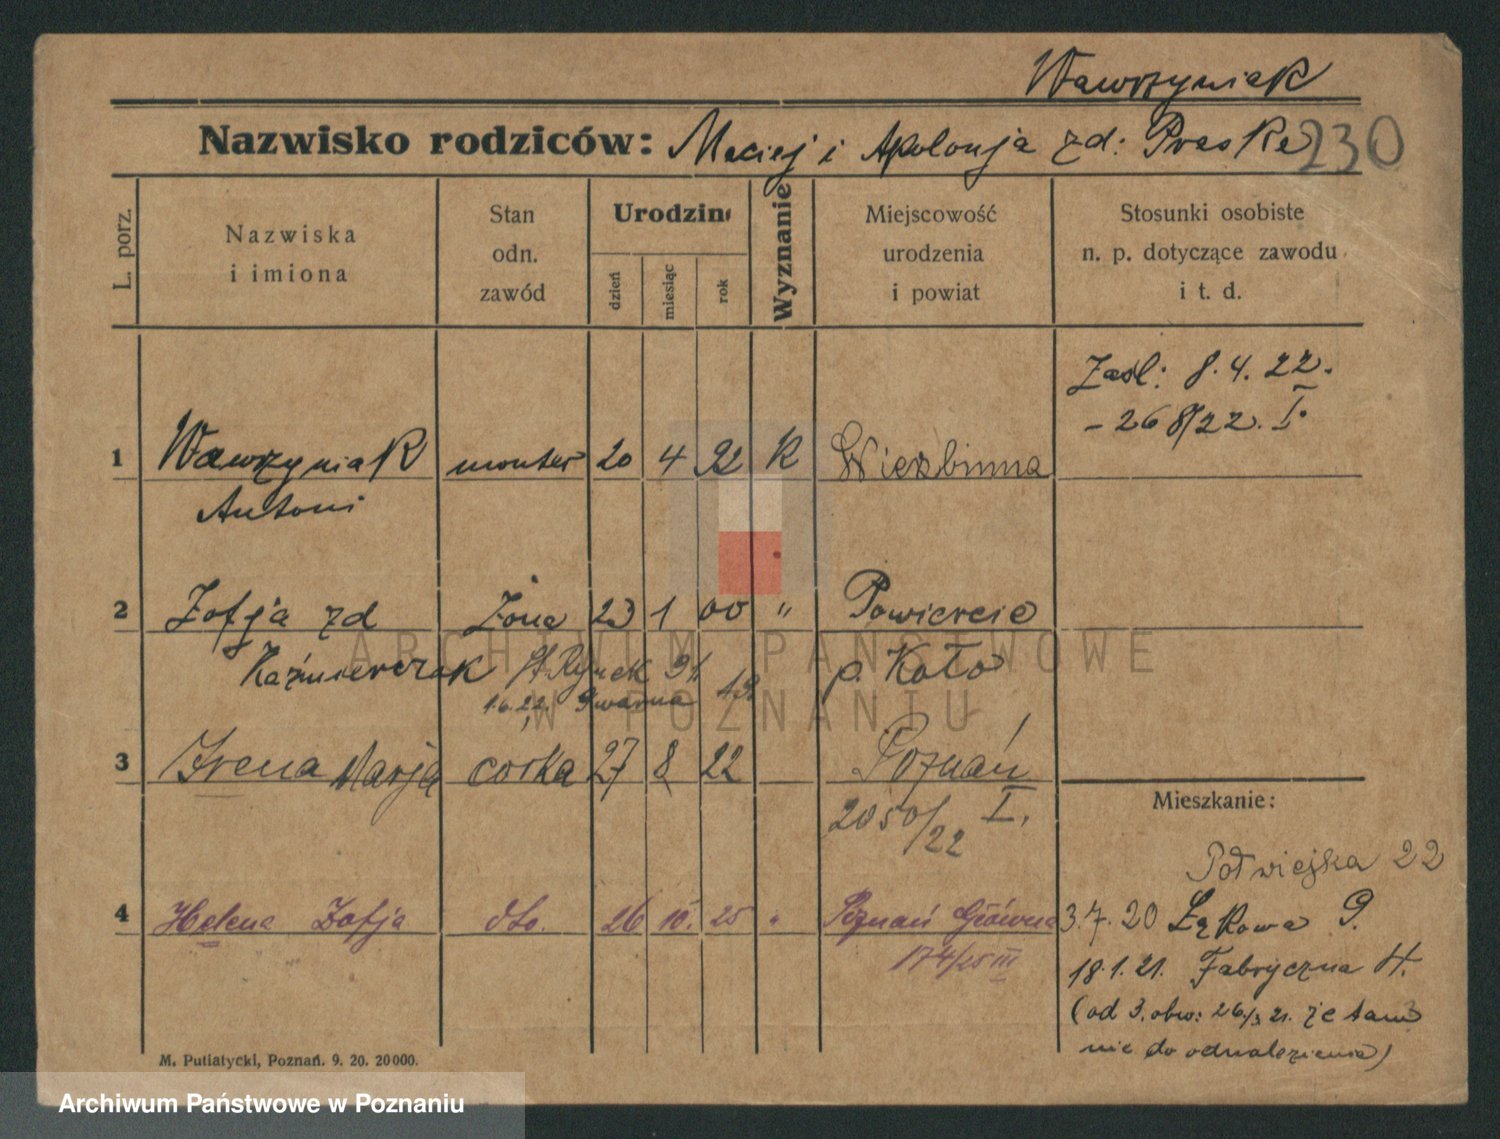 Wawrzyniak
Nazwisko rodziców: Maciej i Apolonja zd: Praske 230
L. porz.
Nazwiska
i imiona
Stan
odn.
zawód
Urodzin
dzień
miesiąc
rok
Wyznanie
Miejscowość
urodzenia
i powiat
Stosunki osobiste
n. p. dotyczące zawodu
i t. d.
Zaśl: 8. 4. 22.
- 268/22. I.
1 Wawrzyniak monter 20 4 92 K Wierzbinna
Antoni
2 Zofja zd Żona 23 1 00 " Powiercie
Kaźmierczak St. Rynek p. Koło
1.6.22. Gwarna 19
3 Irena Marja córka 27 8 22 Poznań
2050/22 I.
Mieszkanie:
Półwiejska 22
4 Helena Zofja dto. 26 10. 25 " Poznań Główna
174/25 III
3.7.20 Łąkowa 9.
18.1.21. Fabryczna 4.
(od 3. obw: 26/3 21. że tam
nie do odnalezienia)
M. Putiatycki, Poznań. 9. 20. 20000.
ARCHIWUM PAŃSTWOWE
W POZNANIU
Archiwum Państwowe w Poznaniu